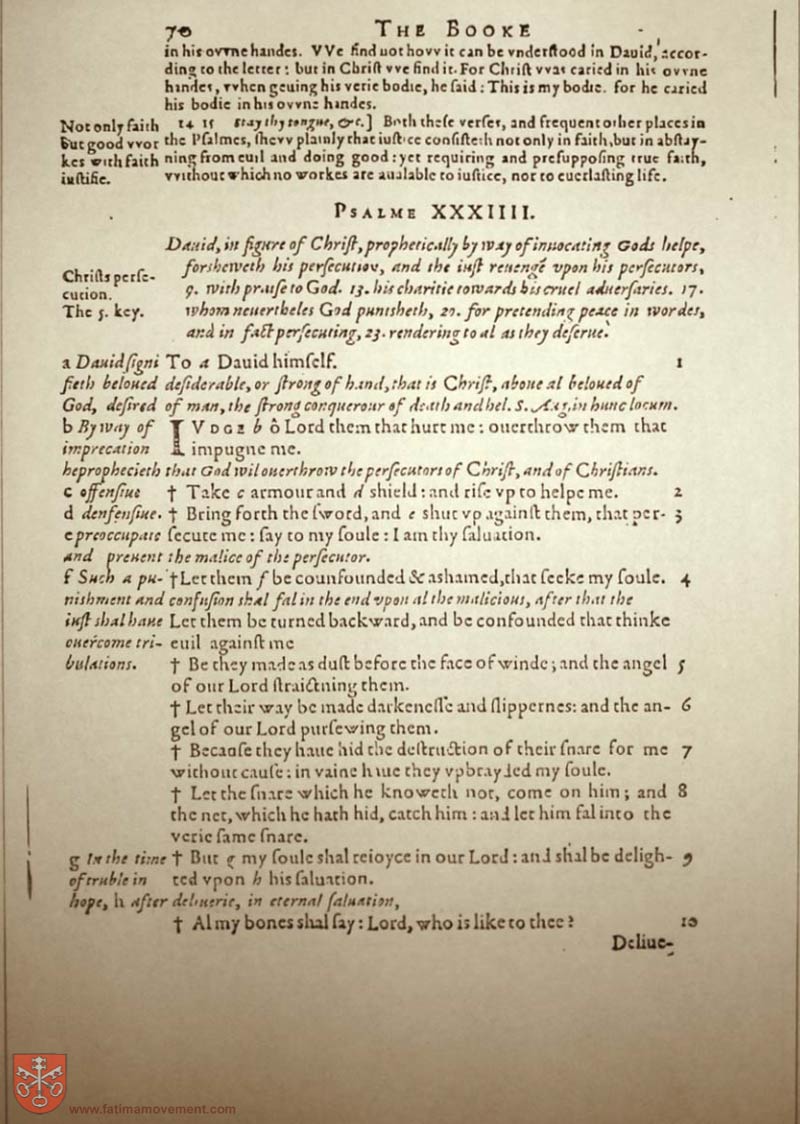 70 THE BOOKE
in his ovvne handes. VVe find not hovv it can be vnderſtood in Dauid, accor-
ding to the letter: but in Chriſt vve find it. For Chriſt vvas caried in his ovvne
handes, vvhen geuing his verie bodie, he ſaid: This is my bodie. for he caried
his bodie in his ovvne handes.
Not only faith
but good vvor
kes with faith
iuſtifie.
14 15 Stay thy tongue, &c.] Both theſe verſes, and frequent other places in
the Pſalmes, ſhevv plainly that iuſtice conſiſteth not only in faith, but in abſtay-
ning from euil and doing good: yet requiring and preſuppoſing true faith,
vvithout which no workes are auailable to iuſtice, nor to euerlaſting life.
PSALME XXXIIII.
Chriſts perſe-
cution.
The 5. key.
Dauid, in figure of Chriſt, prophetically by way of inuocating Gods helpe,
forſheweth his perſecution, and the iuſt reuenge vpon his perſecutors,
9. with praiſe to God. 13. his charitie towards his cruel aduerſaries. 17.
whom neuertheles God puniſheth, 20. for pretending peace in wordes,
and in fact perſecuting, 23. rendering to al as they deſerue.
a Dauid ſigni To a Dauid himſelf. 1
fieth beloued deſiderable, or ſtrong of hand, that is Chriſt, aboue al beloued of
God, deſired of man, the ſtrong conquerour of death and hel. S. Aug. in hunc locum.
b By way of IVDGE b ô Lord them that hurt me: ouerthrow them that
imprecation impugne me.
he prophecieth that God wil ouerthrow the perſecutors of Chriſt, and of Chriſtians.
c offenſiue † Take c armour and d shield: and riſe vp to helpe me. 2
d denfenſiue. † Bring forth the ſword, and e shut vp againſt them, that per- 3
e preoccupate ſecute me: ſay to my ſoule: I am thy ſaluation.
and preuent the malice of the perſecutor.
f Such a pu- † Let them f be counfounded & ashamed, that ſeeke my ſoule. 4
nishment and confuſion shal fal in the end vpon al the malicious, after that the
iuſt shal haue Let them be turned backward, and be confounded that thinke
ouercome tri- euil againſt me
bulations. † Be they made as duſt before the face of winde; and the angel 5
of our Lord ſtraictning them.
† Let their way be made darkeneſſe and ſlippernes: and the an- 6
gel of our Lord purſewing them.
† Becauſe they haue hid the deſtruction of their ſnare for me 7
without cauſe: in vaine haue they vpbrayded my ſoule.
† Let the ſnare which he knoweth not, come on him; and 8
the net, which he hath hid, catch him: and let him fal into the
verie ſame ſnare.
g In the time † But g my ſoule shal reioyce in our Lord: and shal be deligh- 9
of truble in ted vpon h his ſaluation.
hope, h after deliuerie, in eternal ſaluation,
† Al my bones shal ſay: Lord, who is like to thee? 10
Deliue-
www.fatimamovement.com